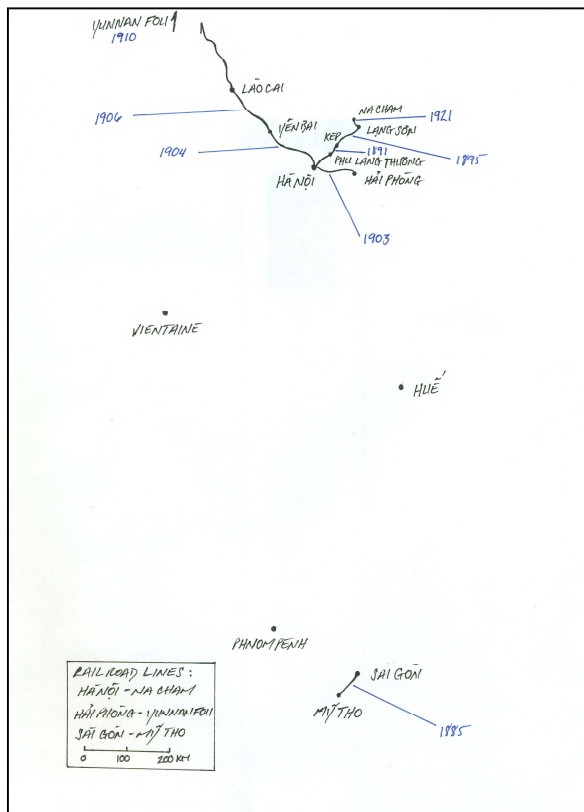 YUNNAN FOU
1910
LÀO CAI
1906
YÊN BAI
1904
NA CHAM
1921
LẠNG SƠN
KEP
1891
1895
PHU LANG THƯƠNG
HÀ NỘI
HẢI PHÒNG
1903
VIENTAINE
HUẾ
PHNOM PENH
SAI GÒN
MỸ THO
1885
RAILROAD LINES:
HÀ NỘI - NA CHAM
HẢI PHÒNG - YUNNAN FOU
SÀI GÒN - MỸ THO
0 100 200 KM